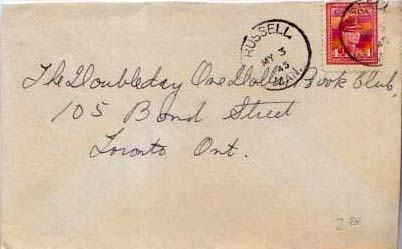 RUSSELL
MY 3
43
MAN.
The Doubleday One Dollar Book Club,
105 Bond Street
Toronto Ont.